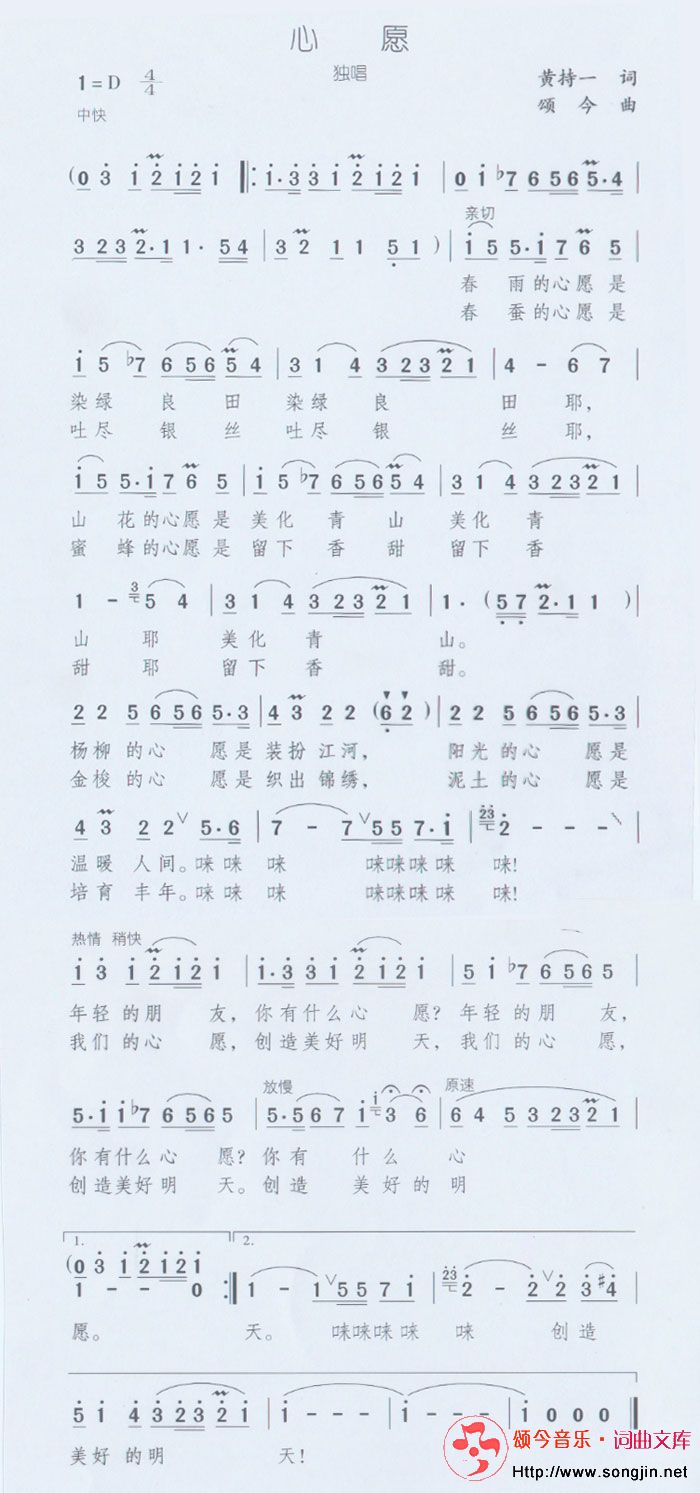 心 愿
独唱
1=D 4/4
黄持一 词
中快
颂 今 曲
(0 3 1 2 1 2 1 1·3 3 1 2 1 2 1 0 1 ♭7 6 5 6 5·4
3 2 3 2·1 1·5 4 3 2 1 1 5 1)
亲切
1 5 5·1 7 6 5
春 雨的心愿是
春 蚕的心愿是
1 5 ♭7 6 5 6 5 4 3 1 4 3 2 3 2 1 4 - 6 7
染绿 良 田 染绿 良 田 耶,
吐尽 银 丝 吐尽 银 丝 耶,
1 5 5·1 7 6 5 1 5 ♭7 6 5 6 5 4 3 1 4 3 2 3 2 1
山 花的心愿是 美化 青 山 美化 青
蜜 蜂的心愿是 留下 香 甜 留下 香
1 - 3 5 4 3 1 4 3 2 3 2 1 1·(5 7 2·1 1)
山 耶 美化 青 山。
甜 耶 留下 香 甜。
2 2 5 6 5 6 5·3 4 3 2 2 (6 2) 2 2 5 6 5 6 5·3
杨柳 的心 愿是 装扮 江河, 阳光 的心 愿是
金梭 的心 愿是 织出 锦绣, 泥土 的心 愿是
4 3 2 2 ∨ 5·6 7 - 7 ∨ 5 5 7·1 23 2 - - -
温暖 人间。咪咪 咪 咪咪咪咪 咪!
培育 丰年。咪咪 咪 咪咪咪咪 咪!
热情 稍快
1 3 1 2 1 2 1 1·3 3 1 2 1 2 1 5 1 ♭7 6 5 6 5
年轻 的朋 友, 你有什么心 愿? 年轻 的朋 友,
我们 的心 愿, 创造美好明 天, 我们 的心 愿,
放慢 原速
5·1 1 ♭7 6 5 6 5 5·5 6 7 1 1 3 6 6 4 5 3 2 3 2 1
你有什么心 愿? 你有 什 么 心
创造美好明 天。创造 美 好的 明
1. 2.
(0 3 1 2 1 2 1
1 - - 0 1 - 1 ∨ 5 5 7 1 23 2 - 2 ∨ 2 3 ♯4
愿。 天。 咪咪咪咪 咪 创造
5 1 4 3 2 3 2 1 1 - - - 1 - - - 1 0 0 0
美好 的明 天!
颂今音乐·词曲文库
Http://www.songjin.net